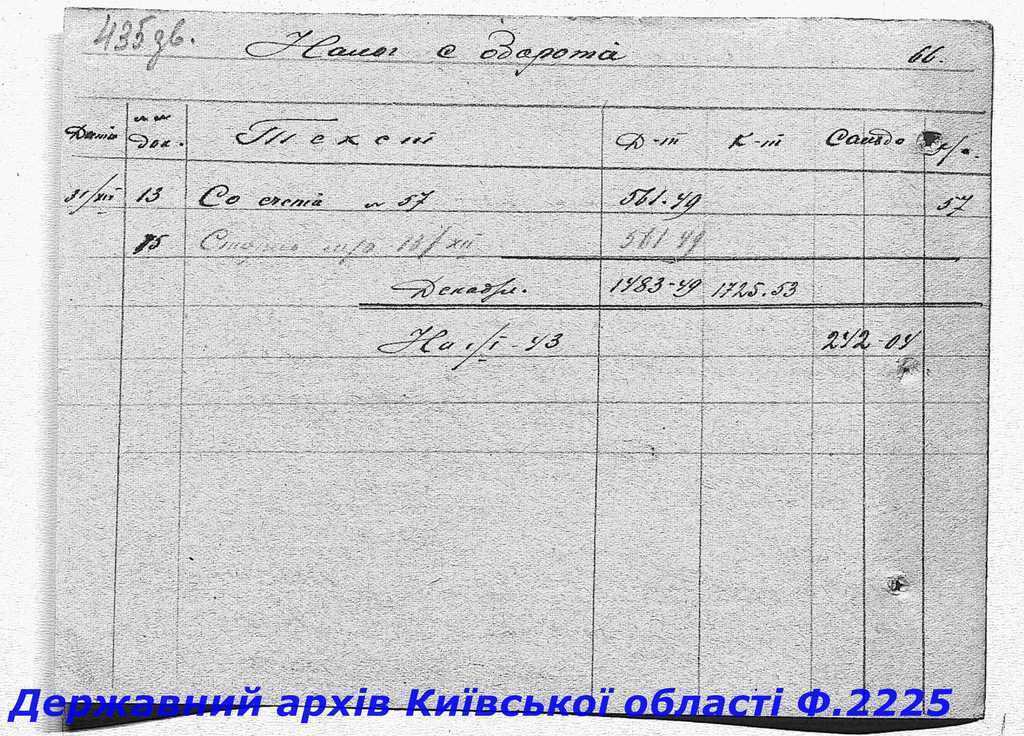 435 зв.
Налог с оборота 66.
Дата №№ док. Текст Д-т К-т Сальдо
31/XII 13 Со счета № 57 561-49 57
15 Сторно 13/XII 561-49
Декабр. 1483-49 1725.53
На 1/I-43 242-04
Державний архів Київської області Ф.2225